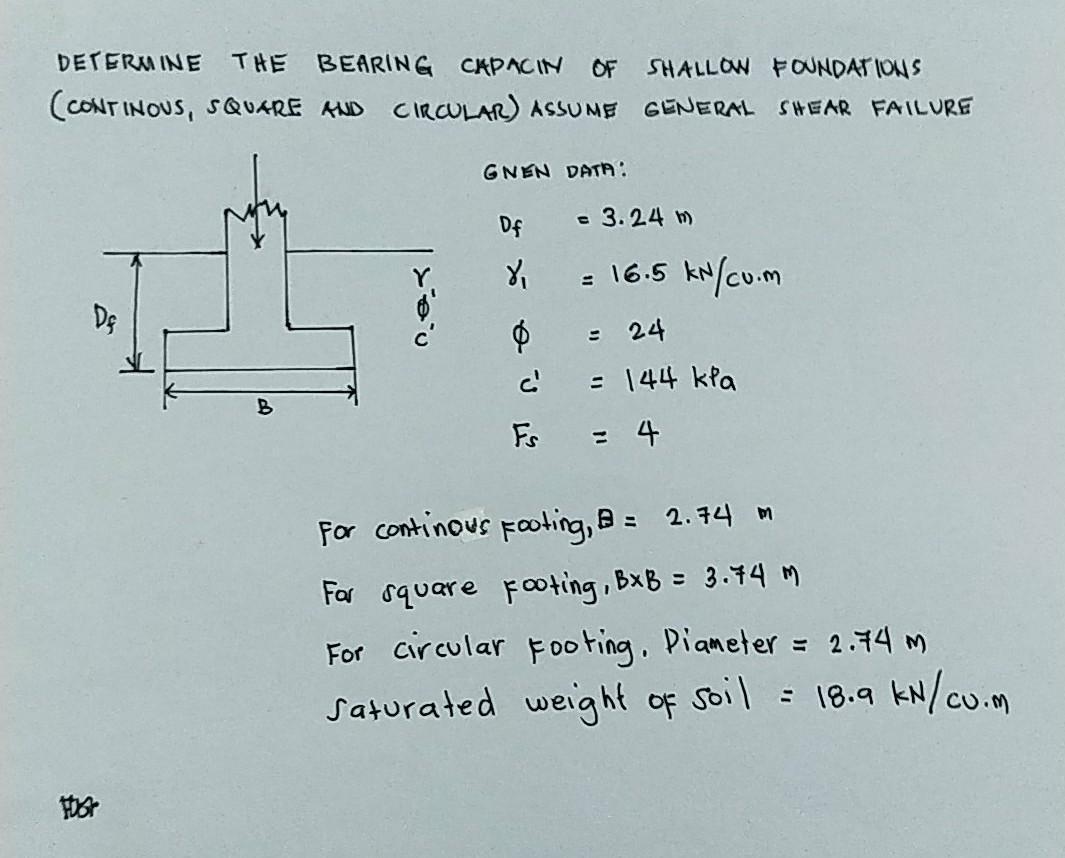 DETERMINE THE BEARING CAPACIN OF SHALLOW FOUNDATIONS
(CONTINOUS, SQUARE AND CIRCULAR) ASSUME GENERAL SHEAR FAILURE
GNEN DATA:
Df = 3.24 m
γ₁ = 16.5 kN/cu.m
ϕ = 24
c' = 144 kPa
Fs = 4
Df
γ
ϕ'
c'
B
For continous footing, B = 2.74 m
For square footing, BxB = 3.74 m
For circular footing, Diameter = 2.74 m
saturated weight of soil = 18.9 kN/cu.m